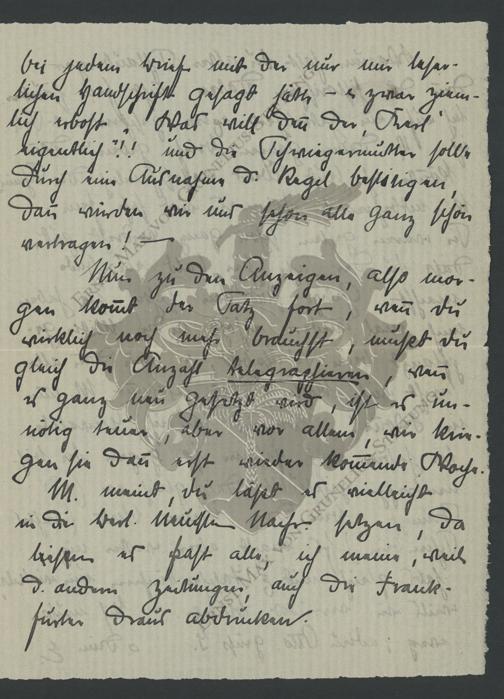 bei jedem Brief mit der nur mir leser-
lichen Handschrift gesagt hätte – u. zwar ziem-
lich erbost „Was will denn der ‚Kerl‘
eigentlich"!! und die Schwiegermutter solle
durch eine Ausnahme d. Regel bestätigen,
dan̄ würden wir uns schon alle ganz schön
vertragen! —
Nun zu den Anzeigen, also mor-
gen kom̄t der Satz fort, wen̄ du
wirklich noch mehr brauchst, mußt du
gleich die Anzahl telegraphieren, wen̄
es ganz neu gesetzt wird, ist es un-
nötig teuer, aber vor allem, wir krie-
gen sie dan̄ erst wieder kom̄ende Woche.
M. meint, du läßt es vielleicht
in die Berl. Neuesten Nachr. setzen, da
lesen es fast alle, ich meine, weil
d. andern Zeitungen, auch die Frank-
furter draus abdrucken.